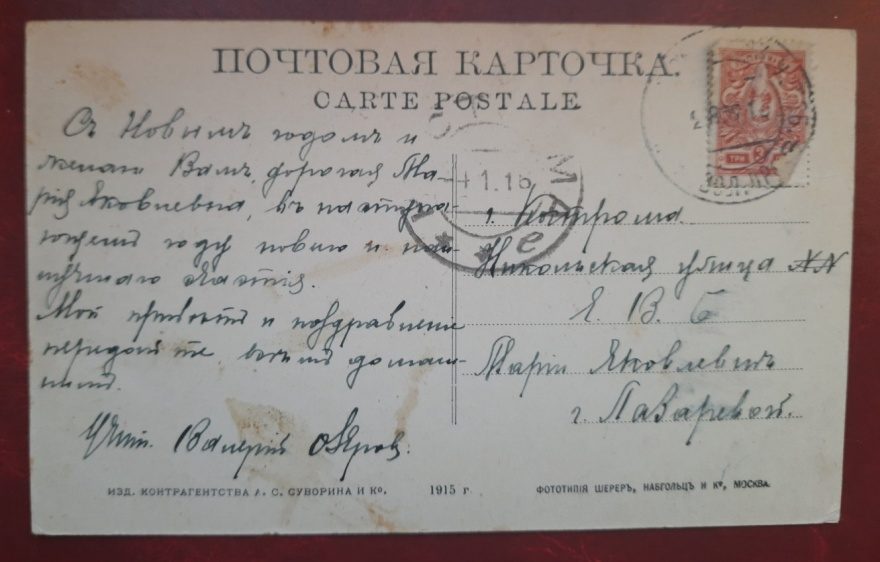 ПОЧТОВАЯ КАРТОЧКА.
CARTE POSTALE
Съ Новымъ годомъ и
желаю Вамъ, дорогая Ма-
рія Яковлевна, въ наступа-
ющемъ году новаго и наи-
лучшаго счастія.
Мой привѣтъ и поздравленіе
передайте всѣмъ домаш-
нимъ.
Валерій
4.1.16
г. Кострома
Никольская улица
Е. В. Б
Маріи Яковлевнѣ
г. Лазаревой.
ТРИ
ИЗД. КОНТРАГЕНТСТВА А. С. СУВОРИНА И Ко.
1915 г
ФОТОТИПІЯ ШЕРЕРЪ, НАБГОЛЬЦЪ И Ко, МОСКВА.